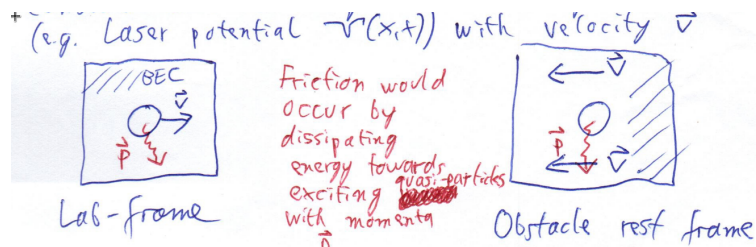 (e.g. Laser potential V(x,t)) with velocity v⃗
BEC
v⃗
p⃗
Lab-frame
Friction would
occur by
dissipating
energy towards
exciting quasi-particles
with momenta
p⃗
v⃗
p⃗
v⃗
Obstacle rest frame